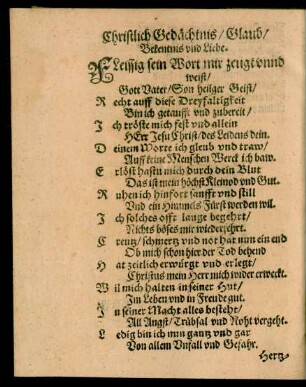 Christlich Gedächtnis / Glaub /
Bekentnis vnd Liebe.
FLeissig sein Wort mir zeugt vnnd
weist /
Gott Vater / Son heilger Geist /
R echt auff diese Dreyfaltigkeit
Bin ich getaufft vnd zubereit /
J ch tröste mich fest vnd allein
HErr Jesu Christ / des Leidens dein.
D einem Worte ich gleub vnd traw /
Auff keine Menschen Werck ich baw.
E rlöst hastu mich durch dein Blut
Das ist mein höchst Kleinod vnd Gut.
R uhen ich hinfort sanfft vnd still
Vnd ein Himmels Fürst werden wil.
J ch solches offt lange begehrt /
Nichts böses mir wiederfehrt.
C reutz / schmertz vnd not hat nun ein end
Ob mich schon hier der Tod behend
H at zeitlich erwürgt vnd erlegt /
Christus mein Herr mich wider erweckt.
W il mich halten in seiner Hut /
Im Leben vnd in Freude gut.
J n seiner Macht alles besteht /
All Angst / Trübsal vnd Noht vergeht.
L edig bin ich nun gantz vnd gar
Von allem Vnfall vnd Gefahr.
Hertz-